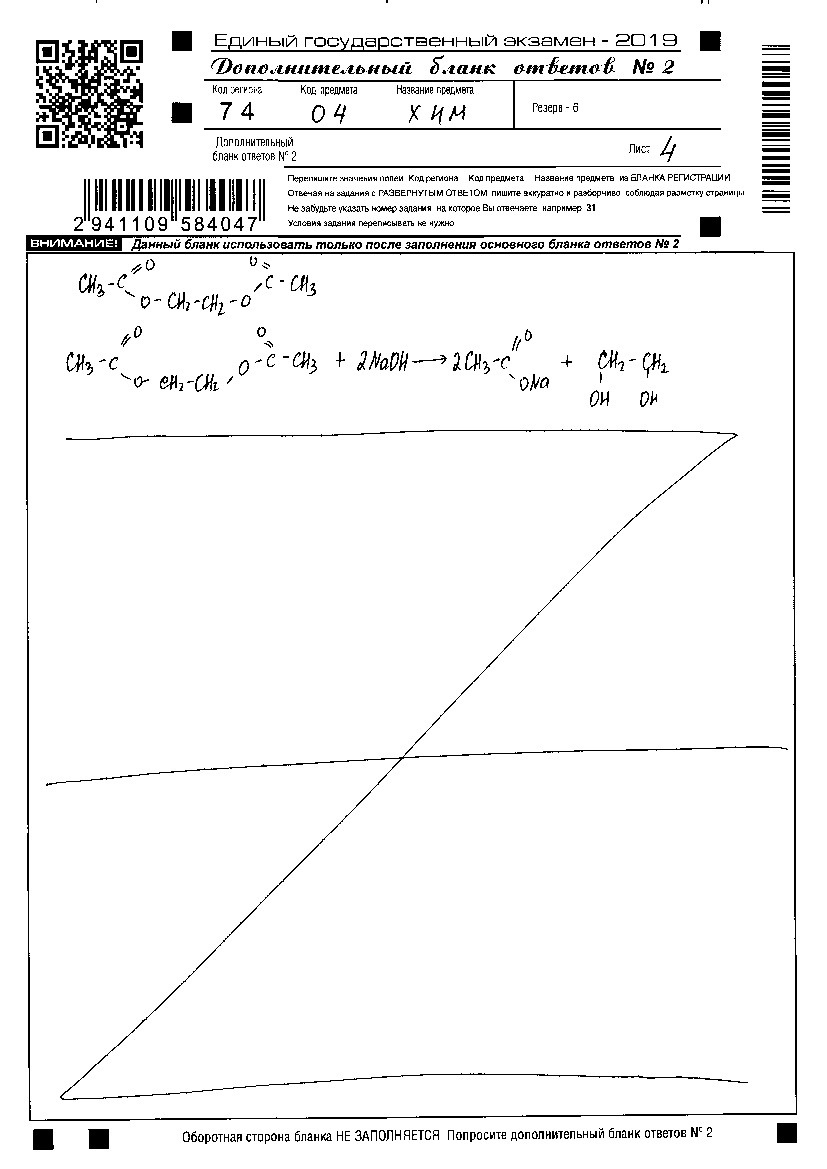 Единый государственный экзамен - 2019
Дополнительный бланк ответов № 2
Код региона Код предмета Название предмета
74 04 ХИМ
Резерв - 6
Дополнительный бланк ответов № 2
Лист 4
Перепишите значения полей Код региона Код предмета Название предмета из БЛАНКА РЕГИСТРАЦИИ
Отвечая на задания с РАЗВЕРНУТЫМ ОТВЕТОМ пишите аккуратно и разборчиво соблюдая разметку страницы
Не забудьте указать номер задания на которое Вы отвечаете например 31
Условия задания переписывать не нужно
2941109 584047
ВНИМАНИЕ! Данный бланк использовать только после заполнения основного бланка ответов № 2
O O
CH3-C C-CH3
O-CH2-CH2-O
O O O
CH3-C O-C-CH3 + 2NaOH → 2CH3-C + CH2-CH2
O-CH2-CH2 ONa
OH OH
Оборотная сторона бланка НЕ ЗАПОЛНЯЕТСЯ Попросите дополнительный бланк ответов № 2